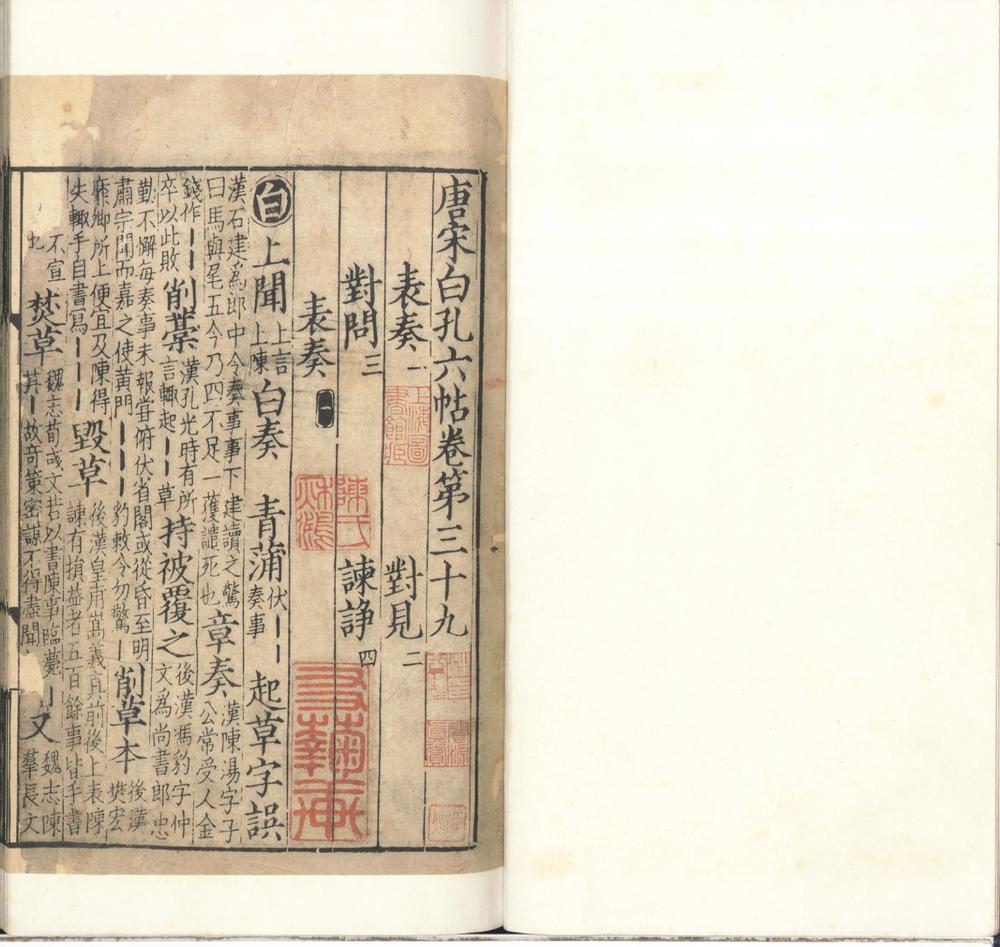 唐宋白孔六帖卷第三十九
表奏一 對見二
對問三 諫諍四
表奏 一
白 上聞 上言上陳 白奏 青蒲 伏丨奏事 起草字誤
漢石建為郎中令奏事事下建讀之驚
曰馬與尾五今乃四不足一獲譴死也 章奏 漢陳湯字子公常受人金
錢作丨丨卒以此敗 削藁 漢孔光時有所言輒起丨草 持被覆之 後漢馮豹字仲文為尚書郎忠
勤不懈每奏事未報嘗俯伏省閣或從昏至明
肅宗聞而嘉之使黃門丨丨丨丨豹敕令勿驚丨 削草本 後漢樊宏
靡卿所上便宜及陳得失輒手自書寫丨丨丨丨 毀草 後漢皇甫嵩義真前後上表陳諫有損益者五百餘事皆手書
不宣也 焚草 魏志荀彧文若以書陳事臨薨丨其丨故奇策密謀不得盡聞 又 魏志陳羣長文
上海圖書館藏